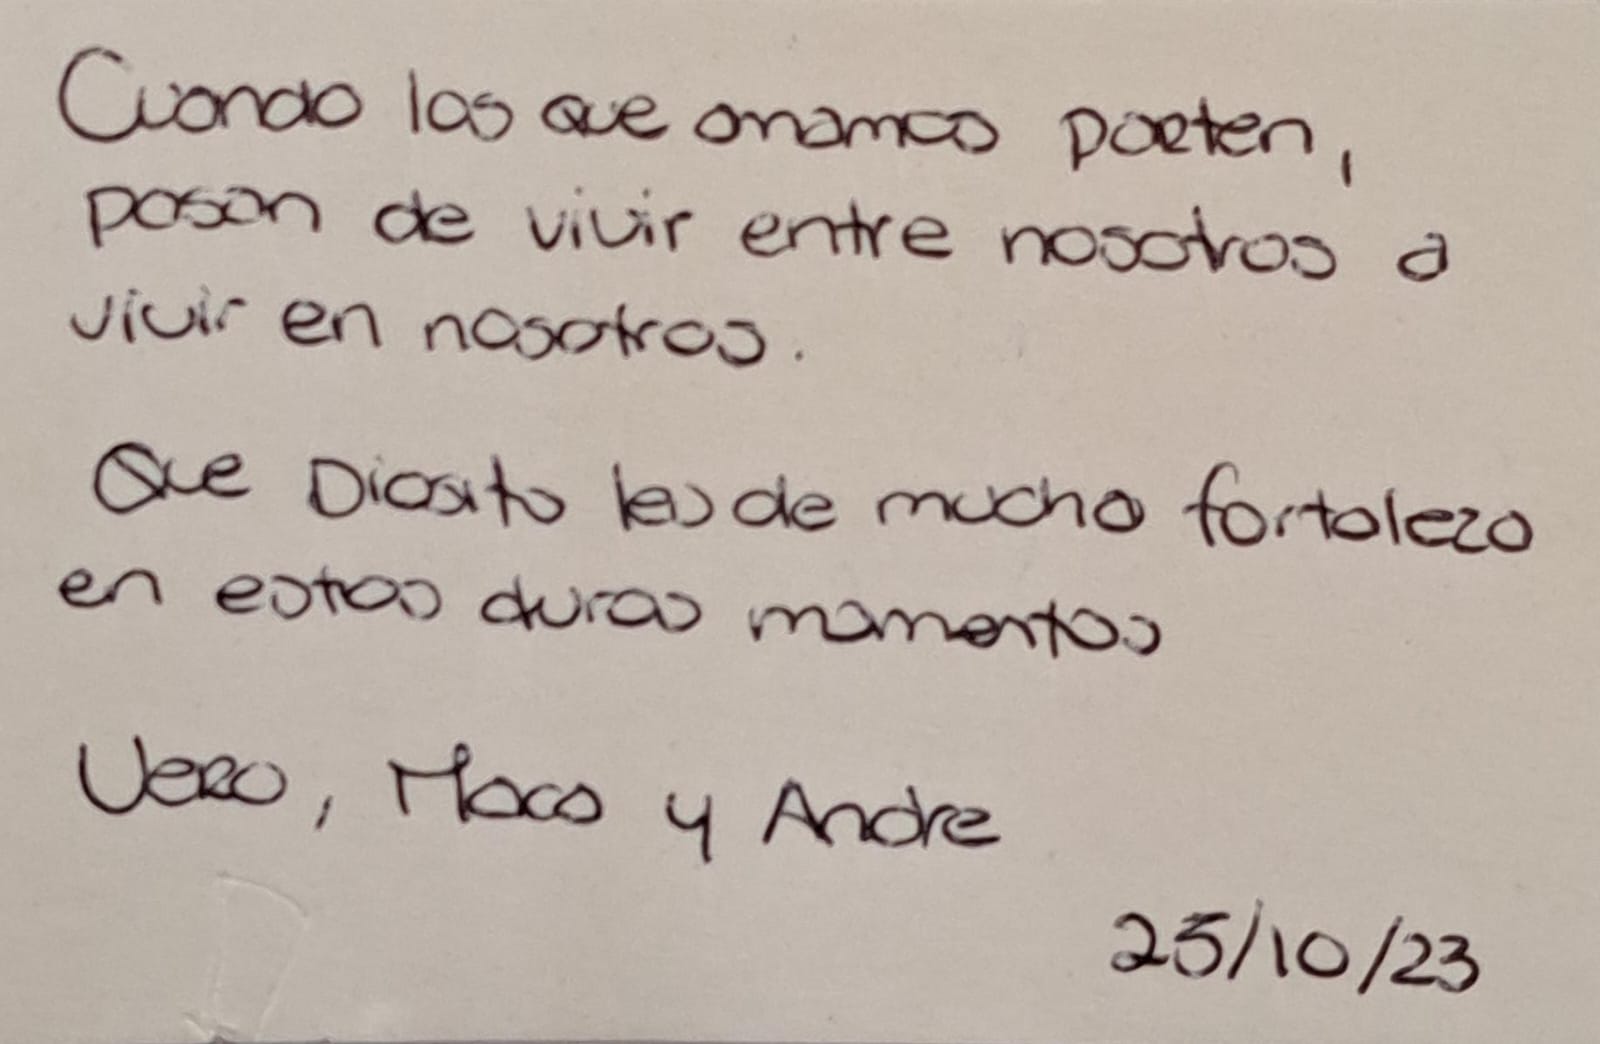 Cuando los que amamos parten,
pasan de vivir entre nosotros a
vivir en nosotros.
Que Diosito les de mucha fortaleza
en estos duros momentos
Vero, Maco y Andre
25/10/23